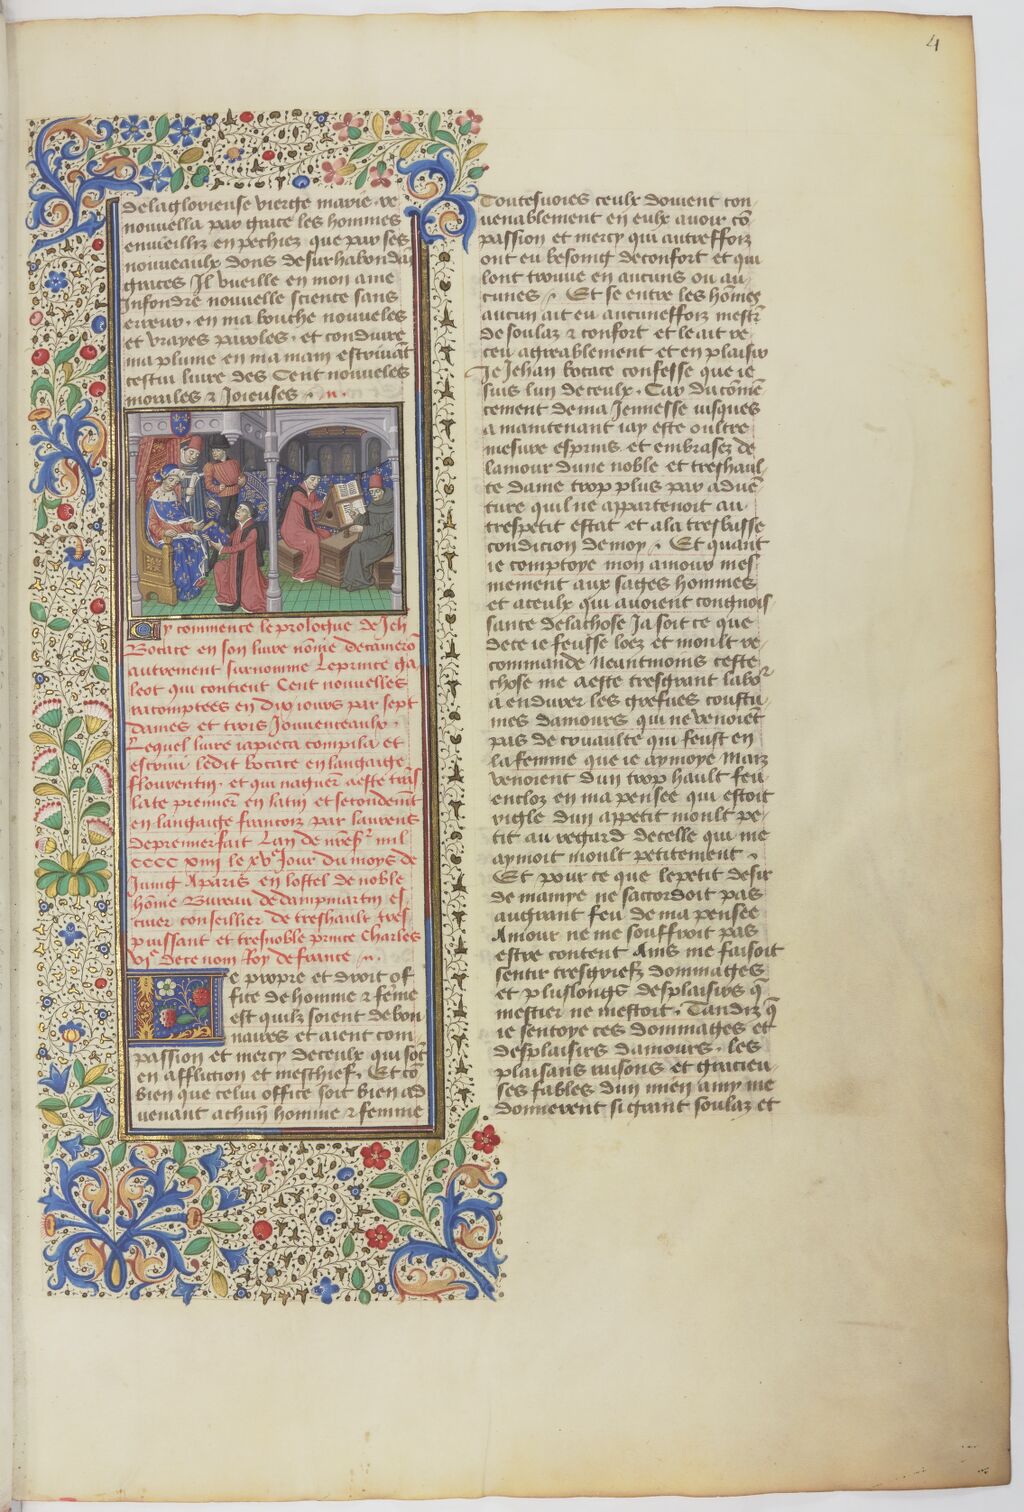 4
delaglorieuse vierge marie. re
nouvella par grace les hommes
enuieilliz en pechiez que par ses
nouueaulx dons desurhabondãs
graces Il vueille en mon ame
Infondre nouuelle science sans
erreur. en ma bouche nouueles
et vrayes paroles. et conduire
ma plume en ma main escriuãt
cestui liure des Cent nouueles
morales ⁊ Joieuses
Cy commence le prologue de Jeh
Bocace en son liure nõme decamerõ
autrement surnomme Le prince ga
leot qui contient Cent nouuelles
racomptees en dix iours par sept
dames et trois Jouuenceaulx.
Lequel liure iapieca compila et
escriui ledit bocace en langaige
flourentin. et qui naguer̃ aeste trãs
late premier̃ en latin et secondem̃t
en langaige francois par laurens
depremierfait Lan de
CCCC xiiii le xvᵉ Jour du moys de
Juing A paris en lostel de noble
hõme Bureau de dampmartin es
cuier conseillier de treshault tres
puissant et tresnoble prince Charles
VIᵉ de ce nom Roy de france
Le propre et droit of
fice de homme ⁊ fẽme
est quilz soient debon
naires et aient com
passion et mercy deceulx qui sõt
en affliction et meschief. Et cõ
bien que celui office soit bien ad
uenant achũn homme ⁊ femme
Toutesuoies ceulx doiuent con
uenablement en eulx auoir cõ
passion et mercy qui autreffoiz
ont eu besoing deconfort et qui
lont trouue en aucuns ou au
cunes. Et se entre les hõmes
aucun ait eu aucuneffoiz mestr̃
de soulaz ⁊ confort et le ait re
ceu agreablement et en plaisir
Je Jehan bocace confesse que ie
suis lun deceulx. Car ducõmẽ
cement de ma Jennesse iusques
a maintenant iay este oultre
mesure esprins et embrasez de
lamour dune noble et treshaul
te dame trop plus par aduẽ
ture quil ne appartenoit au
trespetit estat et a la tresbasse
condicion de moy. Et quant
ie comptoye mon amour mes
mement aux sages hommes
et aceulx qui auoient congnois
sance delachose Ja soit ce que
dece ie feusse loez et moult re
commande Neantmoins ceste
chose me aeste tresgrant labor
a endurer les griefues coustu
mes damours qui ne venoiẽt
pas de cruaulte qui feust en
la femme que ie aymoye Maiz
venoient dun trop hault feu
encloz en ma pensee qui estoit
vigle dun appetit moult pe
tit au regard decelle qui me
aymoit moult petitement.
Et pour ce que lepetit desir
de mamye ne saccordoit pas
augrant feu de ma pensee
Amour ne me souffroit pas
estre content Ains me faisoit
sentir tresgriefz dommages
et pluslongs desplaisirs q̃
mestier ne mestoit. Tandiz q̃
ie sentoye ces dommages et
desplaisirs damours. les
plaisans raisons et gracieu
ses fables dun mien amy me
donnerent si grant soulaz et